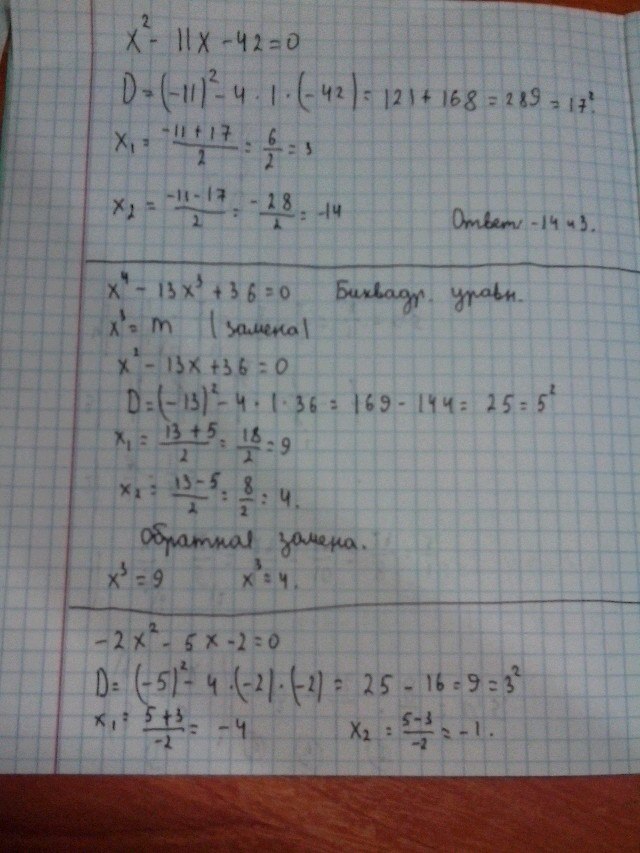 x² - 11x - 42 = 0
D = (-11)² - 4 · 1 · (-42) = 121 + 168 = 289 = 17².
x₁ = (-11 + 17)/2 = 6/2 = 3
x₂ = (-11 - 17)/2 = -28/2 = -14
Ответ -14 и 3.
x⁴ - 13x³ + 36 = 0 Биквадр. уравн.
x³ = m | замена |
x² - 13x + 36 = 0
D = (-13)² - 4 · 1 · 36 = 169 - 144 = 25 = 5²
x₁ = (13 + 5)/2 = 18/2 = 9
x₂ = (13 - 5)/2 = 8/2 = 4.
Обратная замена.
x³ = 9 x³ = 4.
-2x² - 5x - 2 = 0
D = (-5)² - 4 · (-2) · (-2) = 25 - 16 = 9 = 3²
x₁ = (5 + 3)/-2 = -4 x₂ = (5 - 3)/-2 = -1.